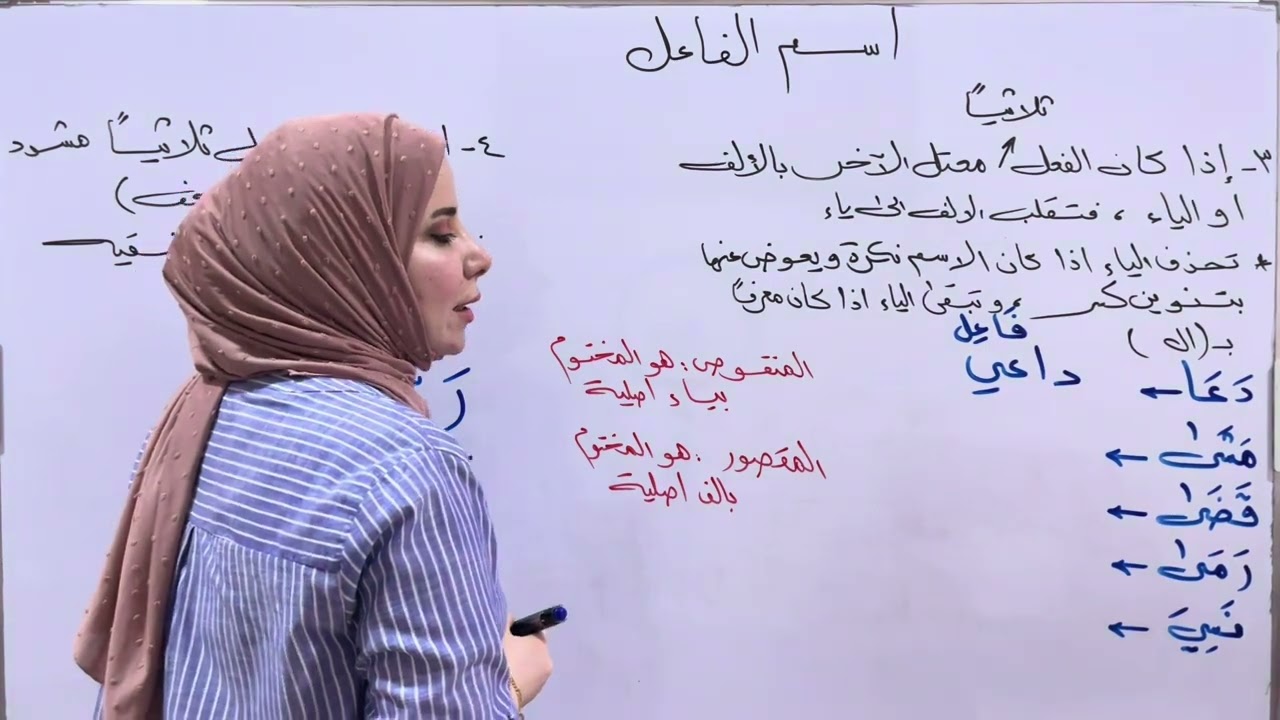 اسم الفاعل
ثلاثياً
٣- إذا كان الفعل معتل الآخر بالألف
او الياء ، فتقلب الالف الى ياء
* تحذف الياء اذا كان الاسم نكرة ويعوض عنها
بتنوين كسر و تبقى الياء اذا كان معرفاً
بـ (ال)
فَاعِل
دَعَا ← داعي
مَشَى ←
قَضَى ←
رَمَى ←
نَسِيَ ←
المنقوص : هو المختوم
بياء اصلية
المقصور : هو المختوم
بالف اصلية
٤- ثلاثياً مشدد